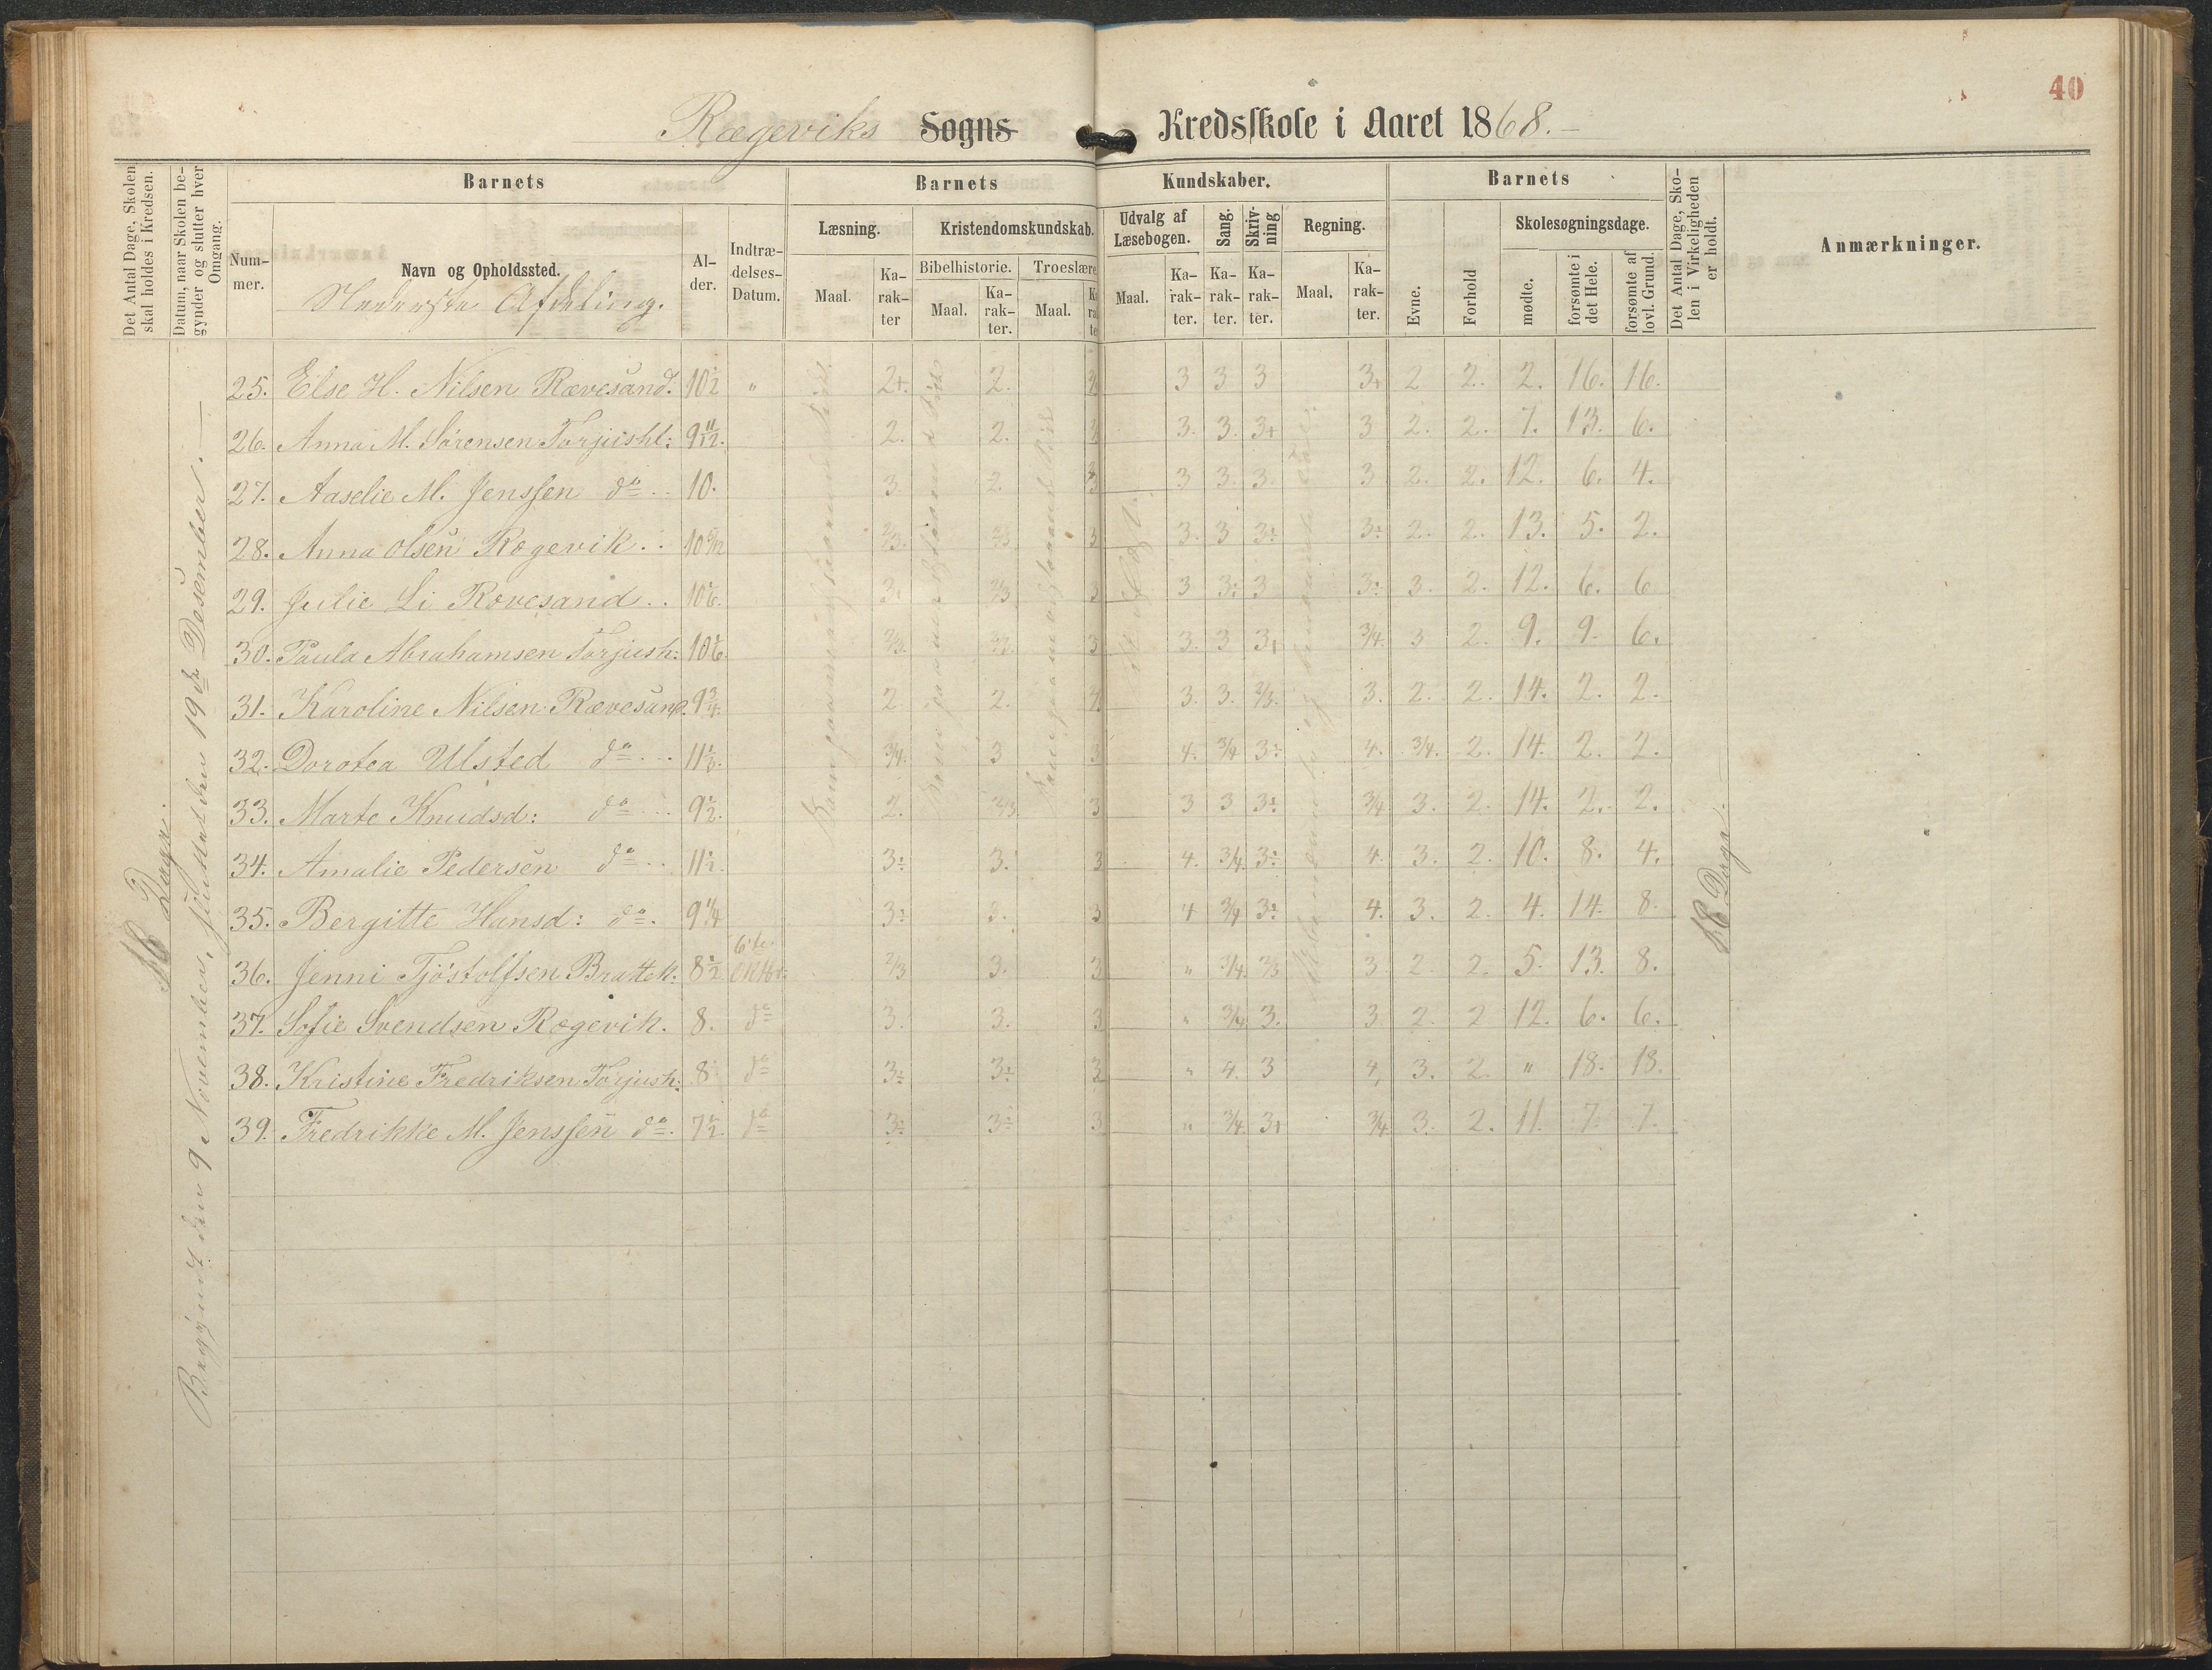 40
Rægeviks Sogns Kredsskole i Aaret 1868.
Det Antal Dage, Skolen skal holdes i Kredsen.
Datum, naar Skolen begynder og slutter hver Omgang.
Barnets
Barnets Kundskaber.
Barnets
Nummer.
Navn og Opholdssted.
Alder.
Indtrædelses-Datum.
Læsning.
Kristendomskundskab.
Udvalg af Læsebogen.
Sang.
Skrivning
Regning.
Evne.
Forhold
Skolesøgningsdage.
Det Antal Dage, Skolen i Virkeligheden er holdt.
Anmærkninger.
Bibelhistorie.
Troeslære
Maal.
Karakter
Maal.
Karakter.
Maal.
Karakter
Maal.
Karakter.
Karakter.
Karakter.
Maal.
Karakter.
mødte.
forsømte i det Hele.
forsømte af lovl. Grund.
Nederste Afdeling.
18 Dage.
Begyndt den 9 November, sluttet den 19de Desember.
25. Else H. Nilsen Rævesand. 10 1/2 " 2+. 2. 3 3 3 3+ 2 2. 2. 16. 16.
26. Anna M. Sörensen Torjusht: 9 11/12. 2. 2. 3. 3. 3+ 3 2. 2. 7. 13. 6.
27. Aaselie M. Jenssen do .. 10. 3 2. 3 3 3. 3. 3 2. 2. 12. 6. 4.
28. Anna Olsen Rögevik .. 10 5/12 2/3. 2/3 3 3. 3 3÷ 3÷ 2. 2. 13. 5. 2.
29. Julie Li Rövesand .. 10 1/6. 3+ 2/3 3 3 3÷ 3 3÷ 3. 2. 12. 6. 6
30. Paula Abrahamsen Torjush: 10 1/6. 2/3. 2/3. 3 3. 3 3+ 3/4. 3 2. 9. 9. 6.
31. Karoline Nilsen Rævesand. 9 3/4. 2. 2. 3. 3. 2/3. 3. 2. 2. 14. 2. 2.
32. Dorotea Ulsted do ... 11 1/6. 3/4. 3 3 4. 3/4 3÷ 4. 3/4. 2. 14. 2. 2.
33. Marte Knudsd: do ... 9 1/2. 2. 2/3. 3 3 3 3÷ 3/4 3. 2. 14. 2. 2.
34. Amalie Pedersen do .. 11 1/2. 3÷ 3. 3 4. 3/4. 3÷ 4. 3. 2. 10. 8. 4.
35. Bergitte Hansd: do. 9 1/4 3÷ 3. 3 4 3/4 3÷ 4. 3. 2. 4. 14. 8.
36. Jenni Tjöstolfsen Brattek: 8 1/2 6te Oktbr. 2/3 3. 3 " 3/4. 2/3 3 2. 2. 5. 13. 8.
37. Sofie Svendsen Rögevik. 8. do 3. 3. 3 " 3/4 3. 3 2. 2 12. 6. 6.
38. Kristine Fredriksen Torjush: 8 do 3÷ 3÷ 3 " 4. 3 4, 3. 2. " 18. 18.
39. Fredrikke M. Jenssen do. 7 1/2. do 3÷ 3÷ 3 " 3/4. 3+ 3/4 3. 2. 11. 7. 7.
18 Dage.